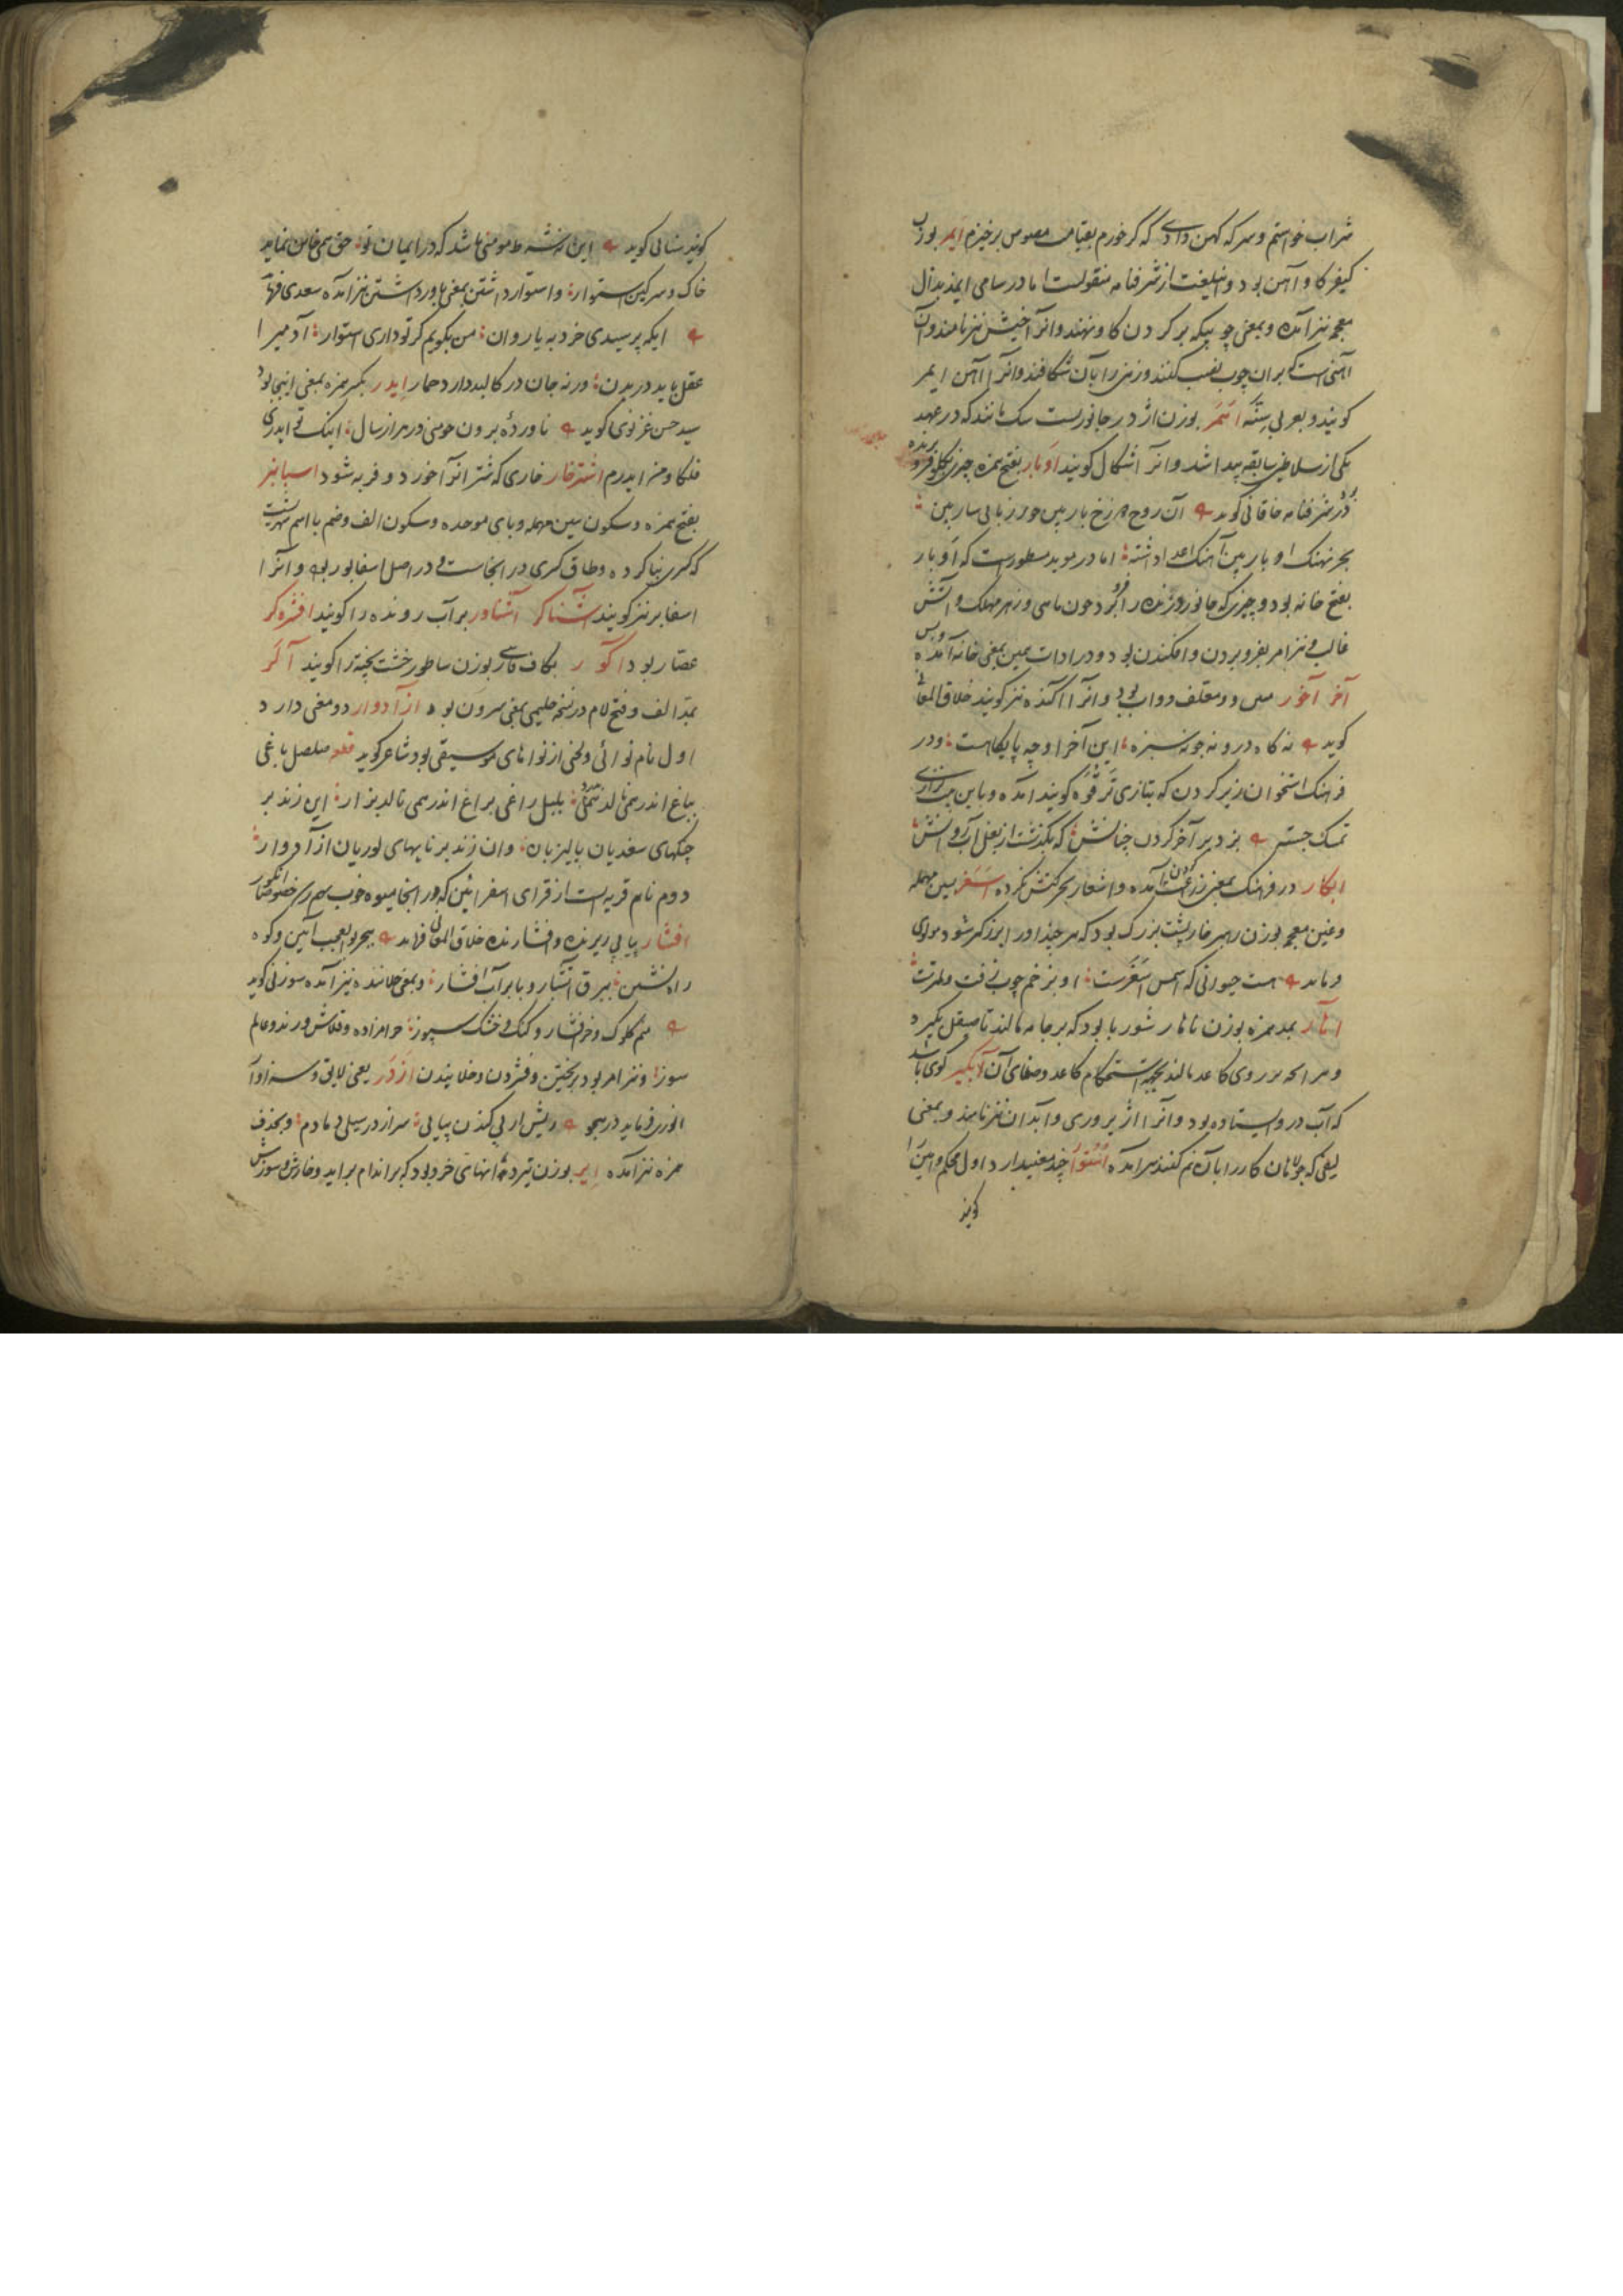 شراب خواستم و سرکه کهن دادی که گر خورم بقیامت مصوص برخیزم ایمر بوزن
کیفر کاو آهن بود و اینلغت از شرفنامه منقولست اما در سامی ایمذ بذال
معجمه نیز آمده و بمعنی چوبیکه بر گردن کاو نهند و انرا نیز نامند و آن
آهنی است که بران چوب نصب کنند و زمین را بآن شکافند و انرا آهن ایمر
کویند و بعربی سنه بوزن اژدر جانوریست سک مانند که در عهد
یکی از سلاطین سابقه پیدا شد و انرا اشکال کویند اوبار بفتح همزه چیزی بکلو فرو برنده
در شرفنامه خاقانی کوید آن روح زخ بار بین حرز زبانی سار بین
بحر نهنک اوبار بین آهنک اعدا داشته اما در موید مسطورست که اوبار
بفتح خانه بود و چیزی که جانور و زنده را فرو برد چون ماهی و زهر مهلک و آتش
غالب و نیز امر بفرو بردن و افکندن بود و در ادات همین بمعنی خانه آمده و بس
آخر آخور معلف دواب بود و انرا آکنده نیز کویند خلاق المعانی
کوید نه کاه درو نه جو نه سبزه این آخر او چه پایکاهست و در
فرهنک استخوان زیر کردن که بتازی ترقوه کویند آمده و باین بیت نزاری
تمسک جسته بزد بر آخر کردن چنانش که بگذشت از بغل آب روانش
ابکار در فرهنک بمعنی زراعت آمده و اشعار بحرکتش نکرده اسغر بسین مهمله
و غین معجمه بوزن رهبر خارپشت بزرک بود که هر چند او را بزنند بزرکتر شود مولوی
فرماید هست حیوانی که اسمش اسغرست او بزخم چوب زفت و لمترست
آهار بمد همزه بوزن ناهار شوربا بود که بر جامه مالند تا صیقل بکیرد
و هر آنچه بر روی کاغذ مالند بجهة استحکام کاغذ و صفای آن آبکیر کوی باشد
که آب درو ایستاده بود و انرا اژیر وری و آبدان نیز نامند و بمعنی
لیفی که جولاهان کار را بآن نم کنند هم آمده استوار چند معنی دارد اول محکم و امین را
کویند
کویند سنائی کوید این نه شرط مومنی باشد که در ایمان تو حق همی خاین نماید
خاک و سرکین استوار و استوار داشتن بمعنی باور داشتن نیز آمده سعدی فرماید
ایکه پرسیدی خرد به یا روان من بکویم کر تو داری استوار آدمی را
عقل باید در بدن ورنه جان در کالبد دارد حمار ایدر بکسر همزه بمعنی اینجا بود
سید حسن غزنوی کوید ناورده برون چو منی در هزار سال اینک تو ایدری
فلکا و من ایدرم اشترخار خاری که شتر انرا خورد و فربه شود اسبانبر
بفتح همزه و سکون سین مهمله و بای موحده و سکون الف و ضم با اسم شهریست
که کسری بنا کرده و طاق کسری در انجاست و در اصل اسفابور بوده و انرا
اسفابر نیز کویند آشناگر آشناور بر آب رونده را کویند افشره کر
عصار بود اکور بکاف فارسی بوزن ساطور خشت پخته را کویند آلر
بمد الف و فتح لام در نسخه حلیمی بمعنی سرون بود ازادوار دو معنی دارد
اول نام نوائی و لحنی از نواهای موسیقی بود شاعر کوید قطعه صلصل باغی
بباغ اندر همی نالد بدرد بلبل راغی براغ اندر همی نالد بزار این زند بر
چنکهای سغدیان پالیزبان و ان زند بر نایهای لوریان ازادوار
دوم نام قریه ایست از قرای اسفراین که در انجا میوه خوب بهم رسد خصوصا انکور
افشار پیاپی ریزنده و افشارنده خلاق المعانی فرماید بحر بوالعجب آیین و کوه
راه نشین ببرق آتشبار و بابر آب افشار و بمعنی خلاننده نیز آمده سوزنی کوید
منم کلوک و خرافشار و کنک و خشک سپوز حرامزاده و قلاش و رند و عالم
سوز و نیز امر بود بریختن و فشردن و خلانیدن ازدر یعنی لایق و سزاوار
انوری فرماید در هجو ریش از در پی کندن پیاپی سر از در سیلی دمادم و بحذف
همزه نیز آمده ایر بوزن تیر دانهای خرد بود که بر اندام براید و خارش و سوزش